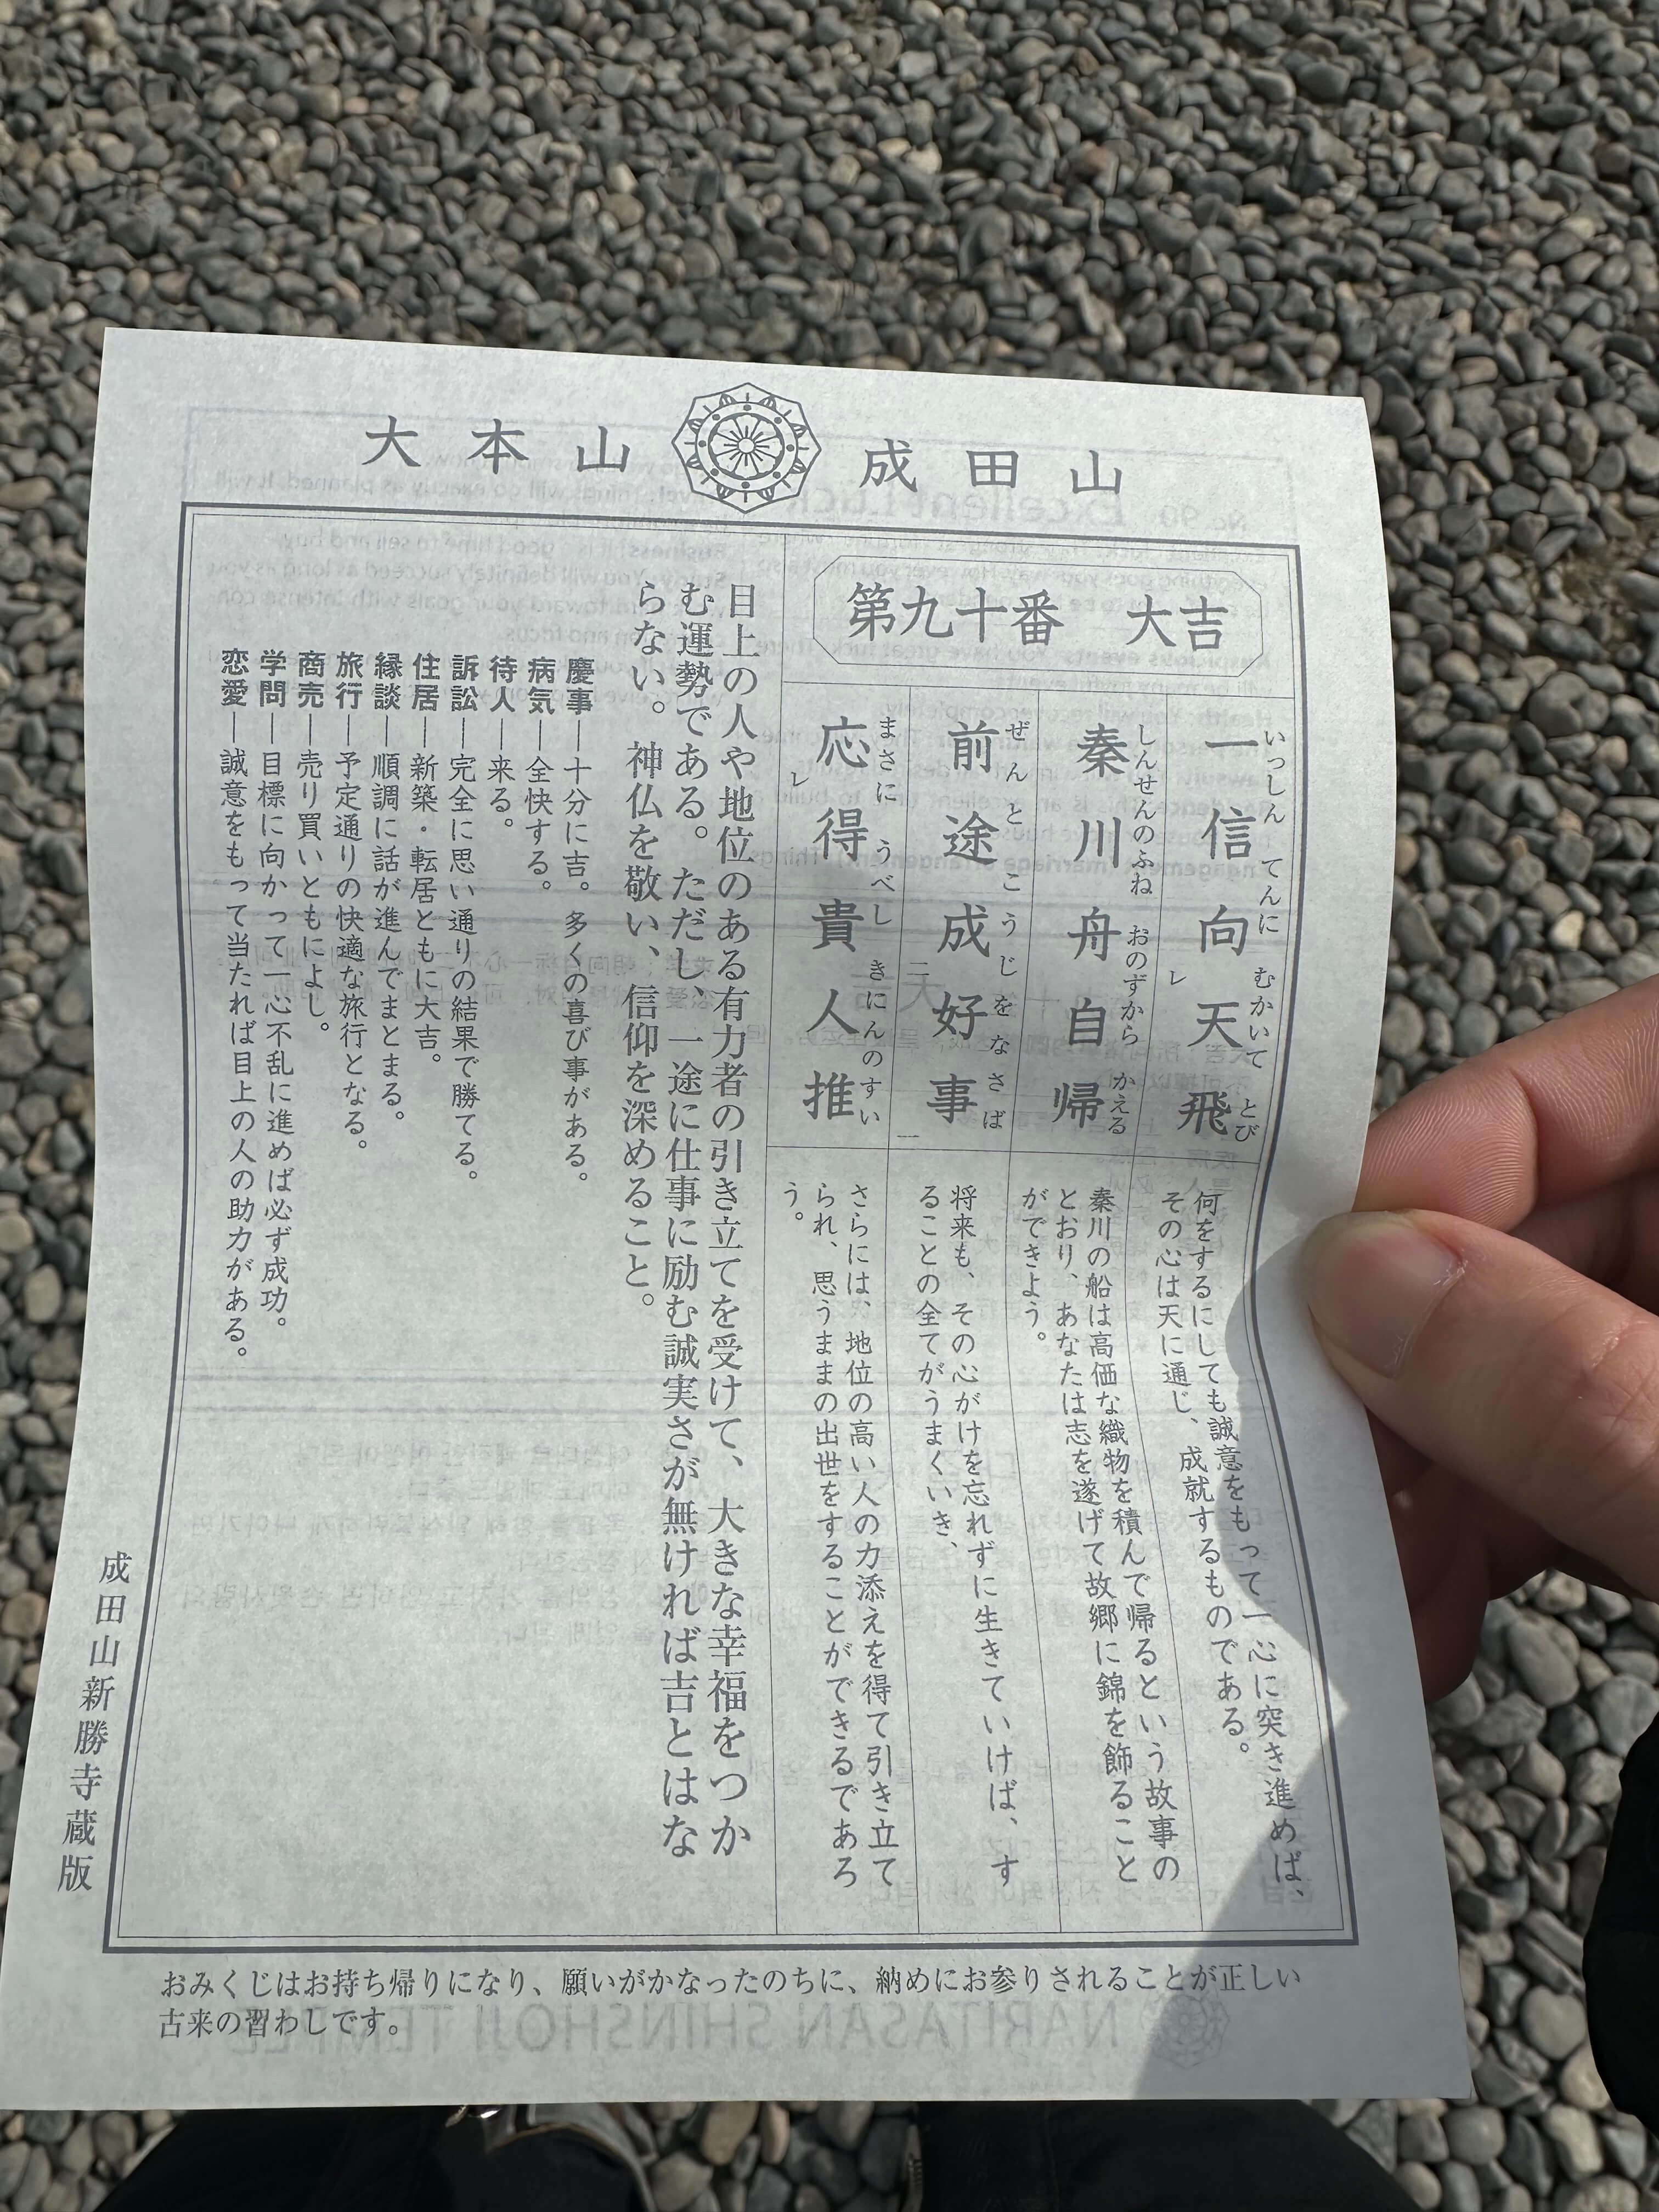 大本山 成田山
第九十番 大吉
一信向天飛
いっしん てんに むかいて とび
レ
何をするにしても誠意をもって一心に突き進めば、
その心は天に通じ、成就するものである。
秦川舟自帰
しんせんのふね おのずから かえる
秦川の船は高価な織物を積んで帰るという故事の
とおり、あなたは志を遂げて故郷に錦を飾ること
ができよう。
前途成好事
ぜんと こうじを なさば
二 一
将来も、その心がけを忘れずに生きていけば、す
ることの全てがうまくいき、
応得貴人推
まさに うべし きにんのすい
レ
さらには、地位の高い人の力添えを得て引き立て
られ、思うままの出世をすることができるであろ
う。
目上の人や地位のある有力者の引き立てを受けて、大きな幸福をつか
む運勢である。ただし、一途に仕事に励む誠実さが無ければ吉とはな
らない。神仏を敬い、信仰を深めること。
慶事―十分に吉。多くの喜び事がある。
病気―全快する。
待人―来る。
訴訟―完全に思い通りの結果で勝てる。
住居―新築・転居ともに大吉。
縁談―順調に話が進んでまとまる。
旅行―予定通りの快適な旅行となる。
商売―売り買いともによし。
学問―目標に向かって一心不乱に進めば必ず成功。
恋愛―誠意をもって当たれば目上の人の助力がある。
成田山新勝寺蔵版
おみくじはお持ち帰りになり、願いがかなったのちに、納めにお参りされることが正しい
古来の習わしです。
NARITASAN SHINSHOJI TEMPLE